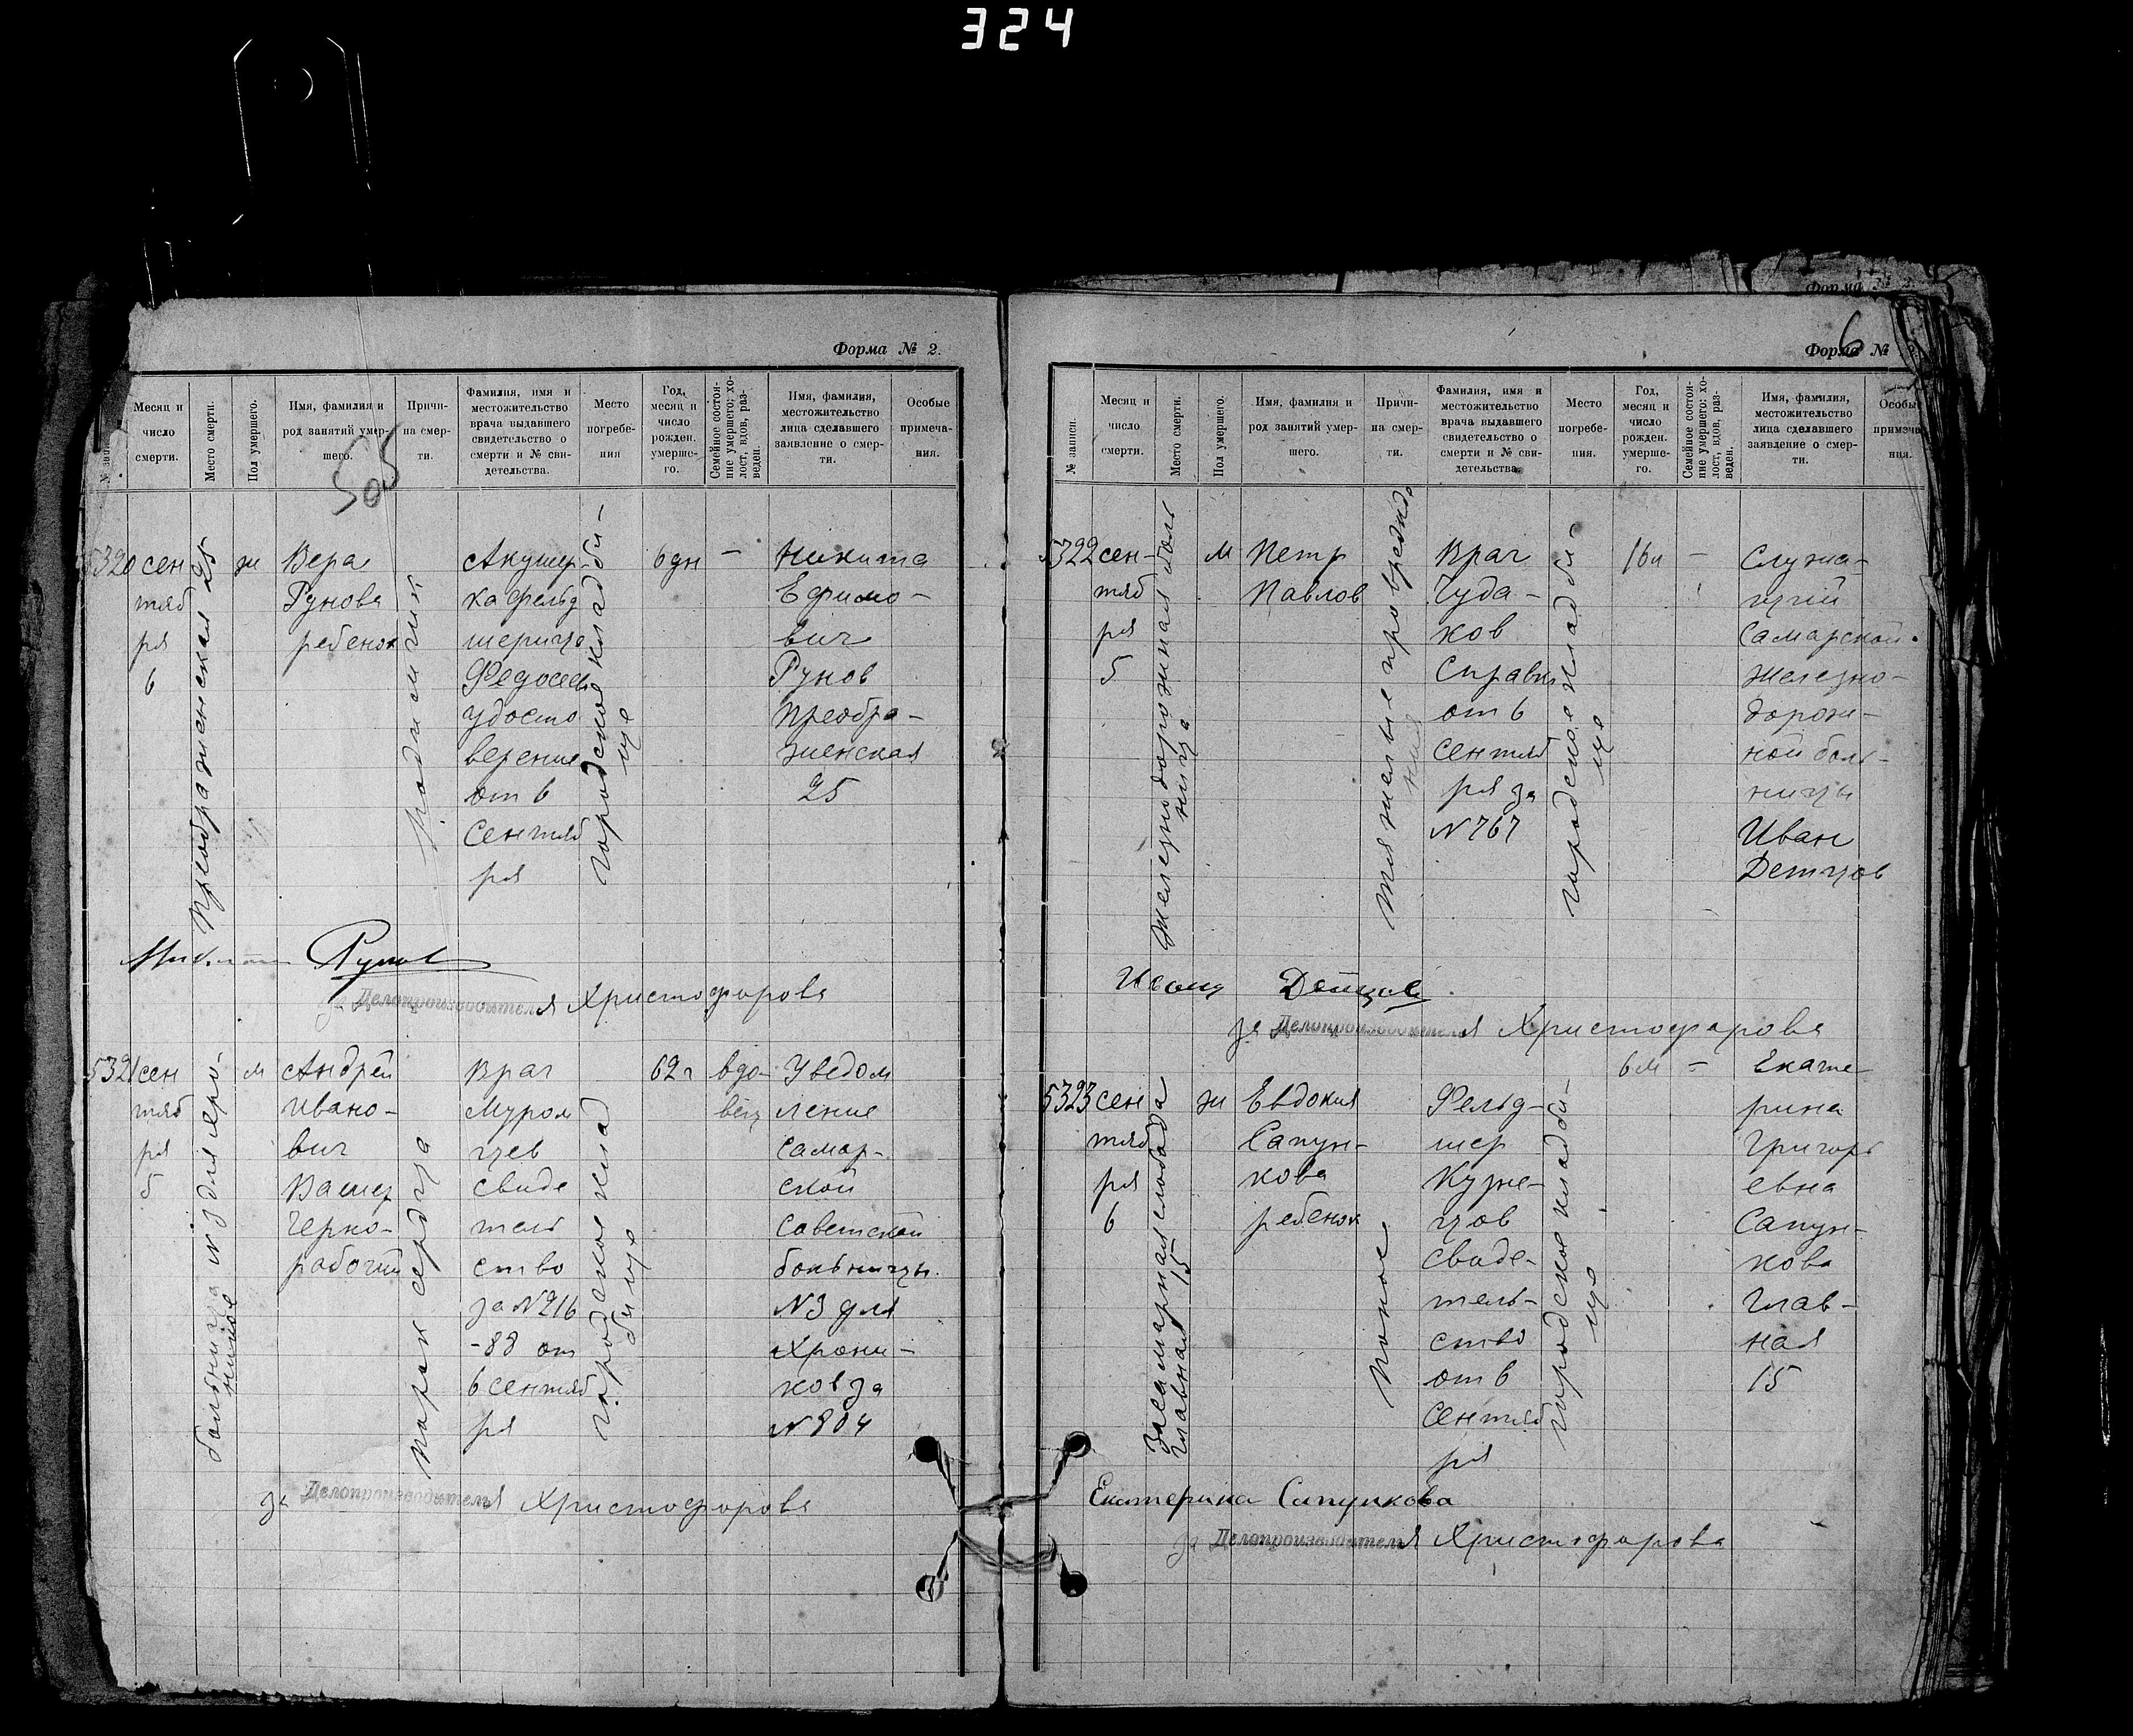 324
Форма № 2.
№ запи
Месяц и
число
смерти.
Место смерти.
Пол умершего.
Имя, фамилия и
род занятий умер-
шего.
Причи-
на смер-
ти.
Фамилия, имя и
местожительство
врача выдавшего
свидетельство о
смерти и № сви-
детельства.
Место
погребе-
ния
Год,
месяц и
число
рожден.
умерше-
го.
Семейное состоя-
ние умершего; хо-
лост, вдов, раз-
веден.
Имя, фамилия,
местожительство
лица сделавшего
заявление о смер-
ти.
Особые
примеча-
ния.
505
5320
сен
тяб
ря
6
Преображенская 25
ж
Вера
Рунова
ребенок
родимчик
Акушер
ка фельд
шерица
Федосеев
удосто
верение
от 6
Сентяб
ря
городское кладби-
ще
6 дн
–
Никита
Ефимо-
вич
Рунов
Преобра-
женская
25
Рунов
за Делопроизводителя Христофорова
5321
сен
тяб
ря
5
больница № 3 для хро-
ников
м
Андрей
Ивано-
вич
Вашер
Черно-
рабочий
порок сердца
Врач
Муром
цев
свиде
тель
ство
за № 216
-88 от
6 сентяб
ря
городское клад
бище
62 г
вдо-
вец
Уведом
ление
Самар-
ской
Советской
больницы
№ 3 для
Хрони-
ков за
№ 904
за Делопроизводителя Христофорова
Форма №
6
№ записи.
Месяц и
число
смерти.
Место смерти.
Пол умершего.
Имя, фамилия и
род занятий умер-
шего.
Причи-
на смер-
ти.
Фамилия, имя и
местожительство
врача выдавшего
свидетельство о
смерти и № сви-
детельства.
Место
погребе-
ния.
Год,
месяц и
число
рожден.
умерше-
го.
Семейное состоя-
ние умершего; хо-
лост, вдов, раз-
веден.
Имя, фамилия,
местожительство
лица сделавшего
заявление о смер-
ти.
Особы
примеча
ния.
5322
сен-
тяб
ря
5
Железнодорожная боль
ница
м
Петр
Павлов
тяжелые
Врач
Чуда-
ков
Справка
от 6
сентяб
ря за
№ 767
городское кладби-
ще
–
Служа-
щий
Самарской
железно-
дорож-
ной боль-
ницы
Иван
Детцов
Иван Детцов
за Делопроизводителя Христофорова
5323
сен
тяб
ря
6
Засамарная слобода
Главная 15
ж
Евдокия
Сапун-
кова
ребенок
понос
Фельд-
шер
Кузне-
цов
свиде-
тель-
ство
от 6
Сентяб
ря
городское кладби-
ще
6 м
–
Екате-
рина
Григорь
евна
Сапун-
кова
Глав-
ная
15
Екатерина Сапункова
за Делопроизводителя Христофорова